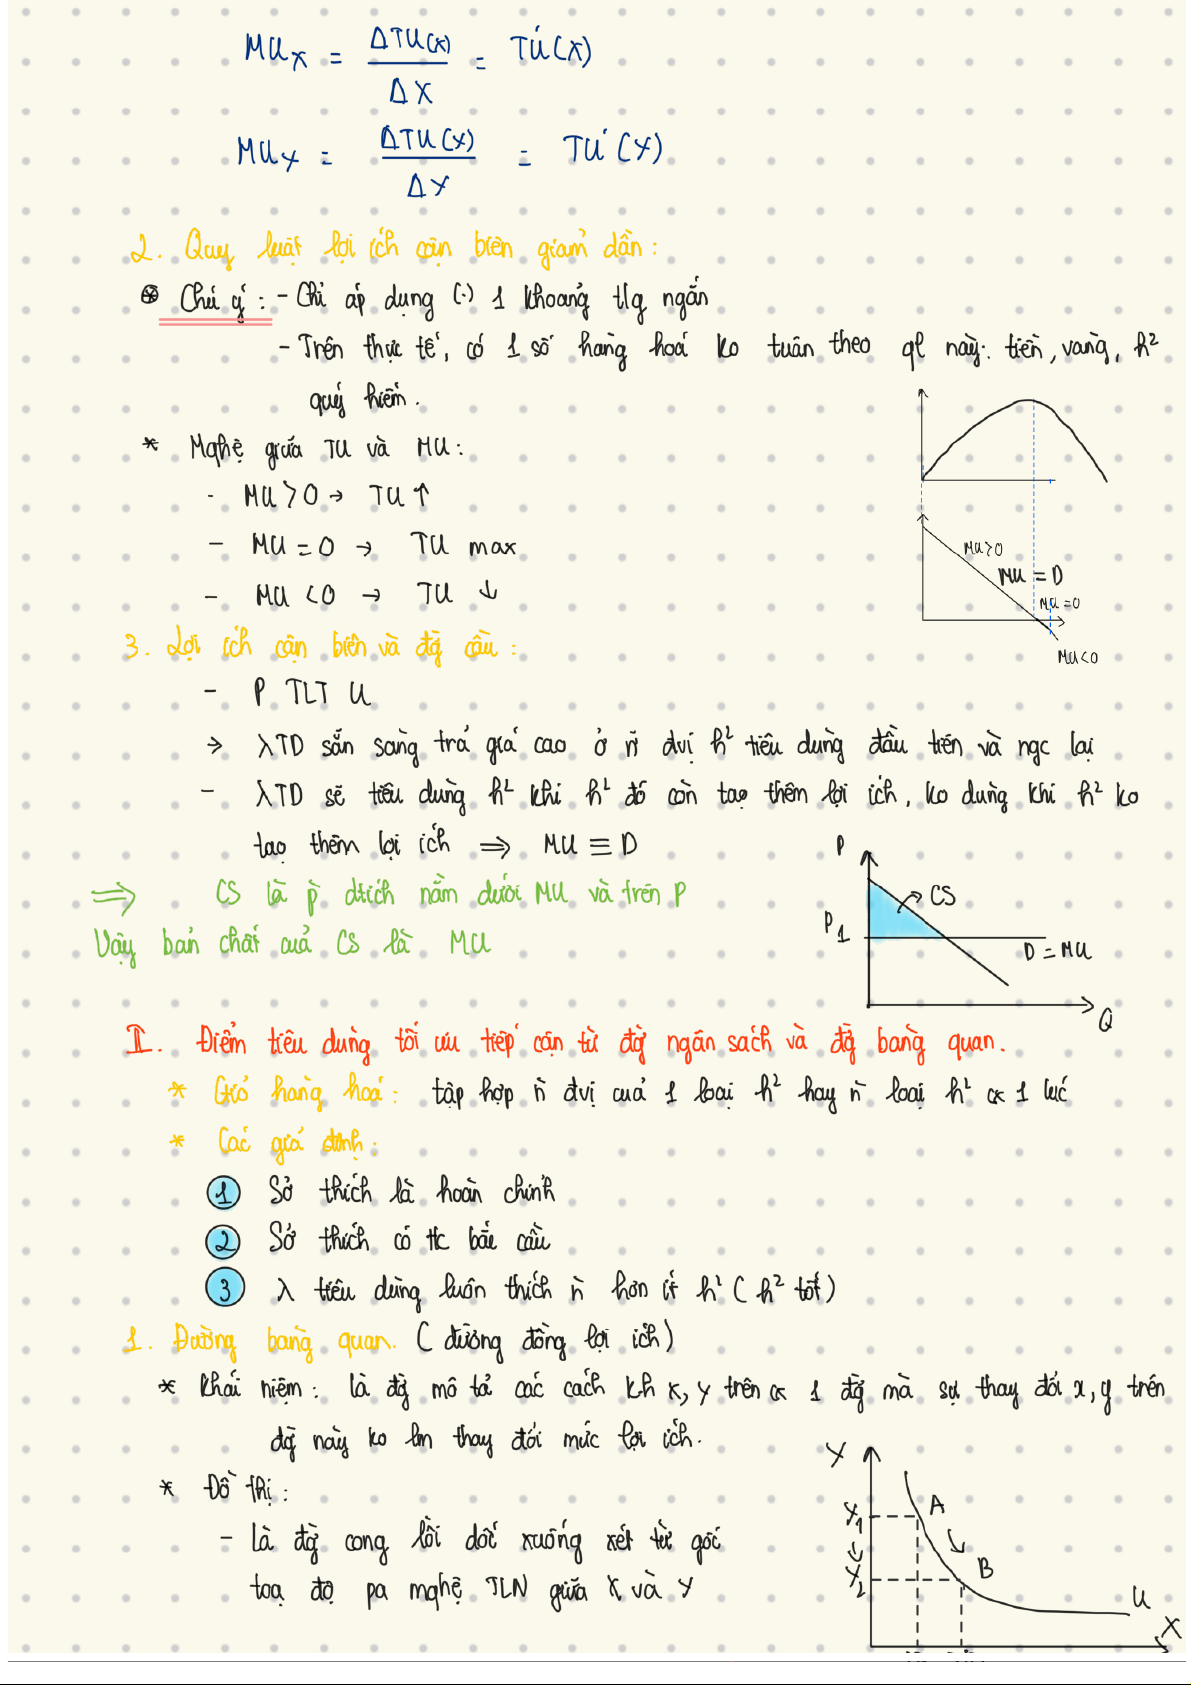 MUx = ΔTU(x) / ΔX = TU'(x)
MUy = ΔTU(Y) / ΔY = TU'(Y)
2. Quy luật lợi ích cận biên giảm dần:
⊛ Chú ý: - Chỉ áp dụng (.) 1 khoảng tlg ngắn
- Trên thực tế, có 1 số hàng hoá ko tuân theo ql này: tiền, vàng, h²
quý hiếm.
* Mqhệ giữa TU và MU:
- MU > 0 → TU ↑
- MU = 0 → TU max
- MU < 0 → TU ↓
MU > 0
MU = D
MU = 0
MU < 0
3. Lợi ích cận biên và đg cầu:
- P TLT U
→ λTD sẵn sàng trả giá cao ở ñ đvị h² tiêu dùng đầu tiên và ngc lại
- λTD sẽ tiêu dùng h² khi h² đó còn tạo thêm lợi ích, ko dùng khi h² ko
tạo thêm lợi ích ⇒ MU ≡ D
⇒ CS là p̀ dtích nằm dưới MU và trên P
Vậy bản chất cuả CS là MU
P
P1
CS
D = MU
Q
II. Điểm tiêu dùng tối ưu tiếp cận từ đg ngân sách và đg bàng quan.
* Giỏ hàng hoá: tập hợp ñ đvị cuả 1 loại h² hay ñ loại h² cx 1 lúc
* Các giả định:
1 Sở thích là hoàn chỉnh
2 Sở thích có tc bắc cầu
3 λ tiêu dùng luôn thích ñ hơn ít h² (h² tốt)
1. Đường bàng quan. (đường đồng lợi ích)
* Khái niệm: là đg mô tả các cách kh x, y trên cx 1 đg mà sự thay đổi x, y trên
đg này ko lm thay đổi mức lợi ích.
* Đồ thị:
- Là đg cong lồi dốc xuống xét từ gốc
toạ độ pa mqhệ TLN giữa X và Y
Y
Y1
Y2
A
B
U
X